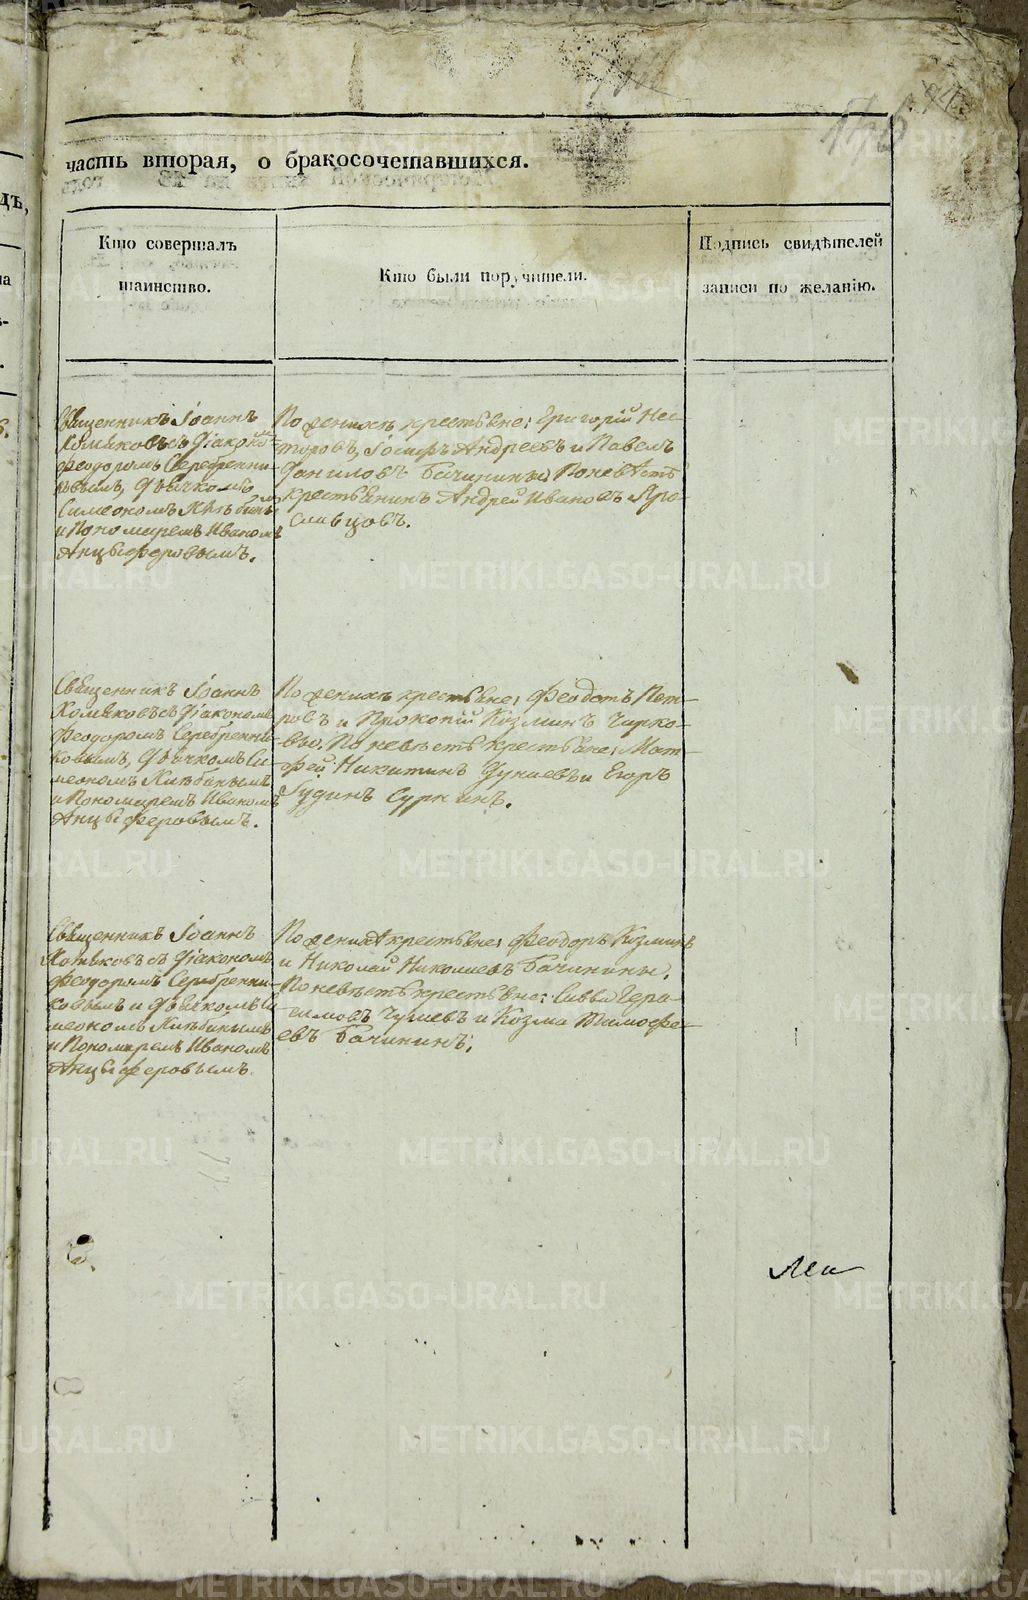 часть вторая, о бракосочетавшихся.
Кто совершалъ
таинство.
Кто были поручители.
Подпись свидѣтелей
записи по желанію.
Священникъ Іоаннъ
Хомяковъ съ Діакономъ
Феодоромъ Серебренни-
ковымъ, Дьячкомъ
Симеономъ Хлѣбинымъ
и Пономаремъ Иваномъ
Анцыферовымъ.
По женихѣ крестьяне: Григорій Нес-
теровъ, Іосифъ Андреевъ и Павелъ
Даниловъ Бачинины По невѣстѣ
крестьянинъ Андрей Ивановъ Яро-
славцовъ.
Священникъ Іоаннъ
Хомяковъ съ Діакономъ
Феодоромъ Серебренни-
ковымъ, Дьячкомъ Си-
меономъ Хлѣбинымъ
и Пономаремъ Иваномъ
Анцыферовымъ.
По женихѣ крестьяне: Феодотъ Пет-
ровъ и Прокопій Козминъ Чирко-
вы. По невѣстѣ крестьяне: Мат-
фей Никитинъ Дунаевъ и Егоръ
Іудинъ Суркинъ.
Священникъ Іоаннъ
Хомяковъ съ Діакономъ
Феодоромъ Серебренни-
ковымъ и Дьячкомъ Си-
меономъ Хлѣбинымъ
и Пономаремъ Иваномъ
Анцыферовымъ.
По женихѣ крестьяне: Феодоръ Козминъ
и Николай Николаевъ Бачинины.
По невѣстѣ крестьяне: Савва Гера-
симовъ Чушевъ и Козма Тимофе-
евъ Бачининъ.
METRIKI.GASO-URAL.RU